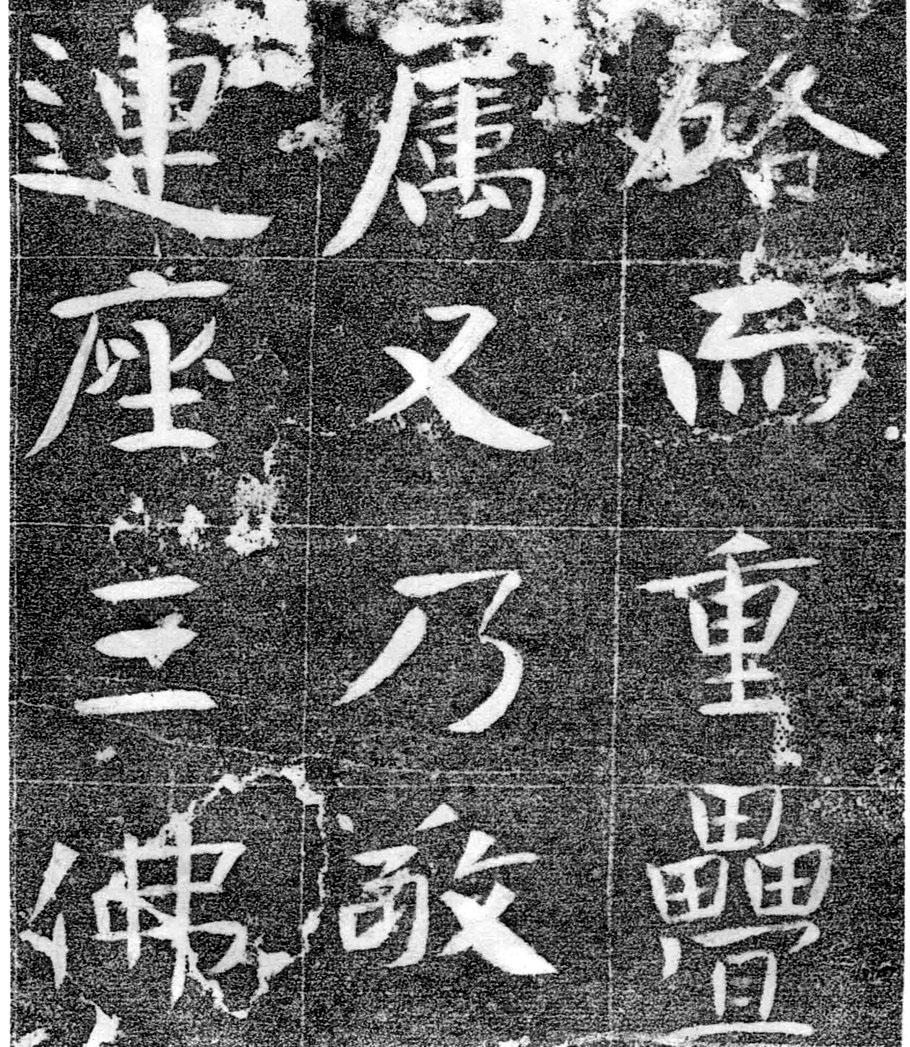 硌而重疊
属又乃敞
連座三佛